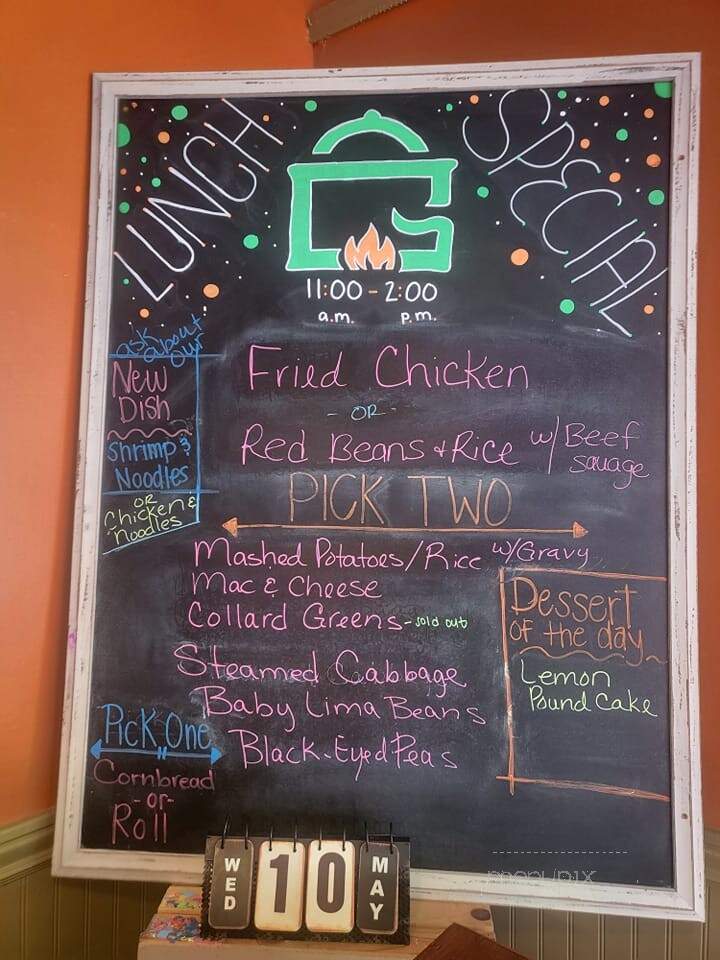 LUNCH SPECIAL
11:00 - 2:00
a.m. p.m.
ask about our
New
Dish
Shrimp &
Noodles
OR
Chicken &
Noodles
Fried Chicken
- OR -
Red Beans + Rice w/ Beef
sausage
PICK TWO
Mashed Potatoes/Rice w/Gravy
Mac & Cheese
Collard Greens - sold out
Steamed Cabbage
Baby Lima Beans
Black-Eyed Peas
Dessert
OF the day
Lemon
Pound Cake
Pick One
Cornbread
- or -
Roll
WED 10 MAY
menupix